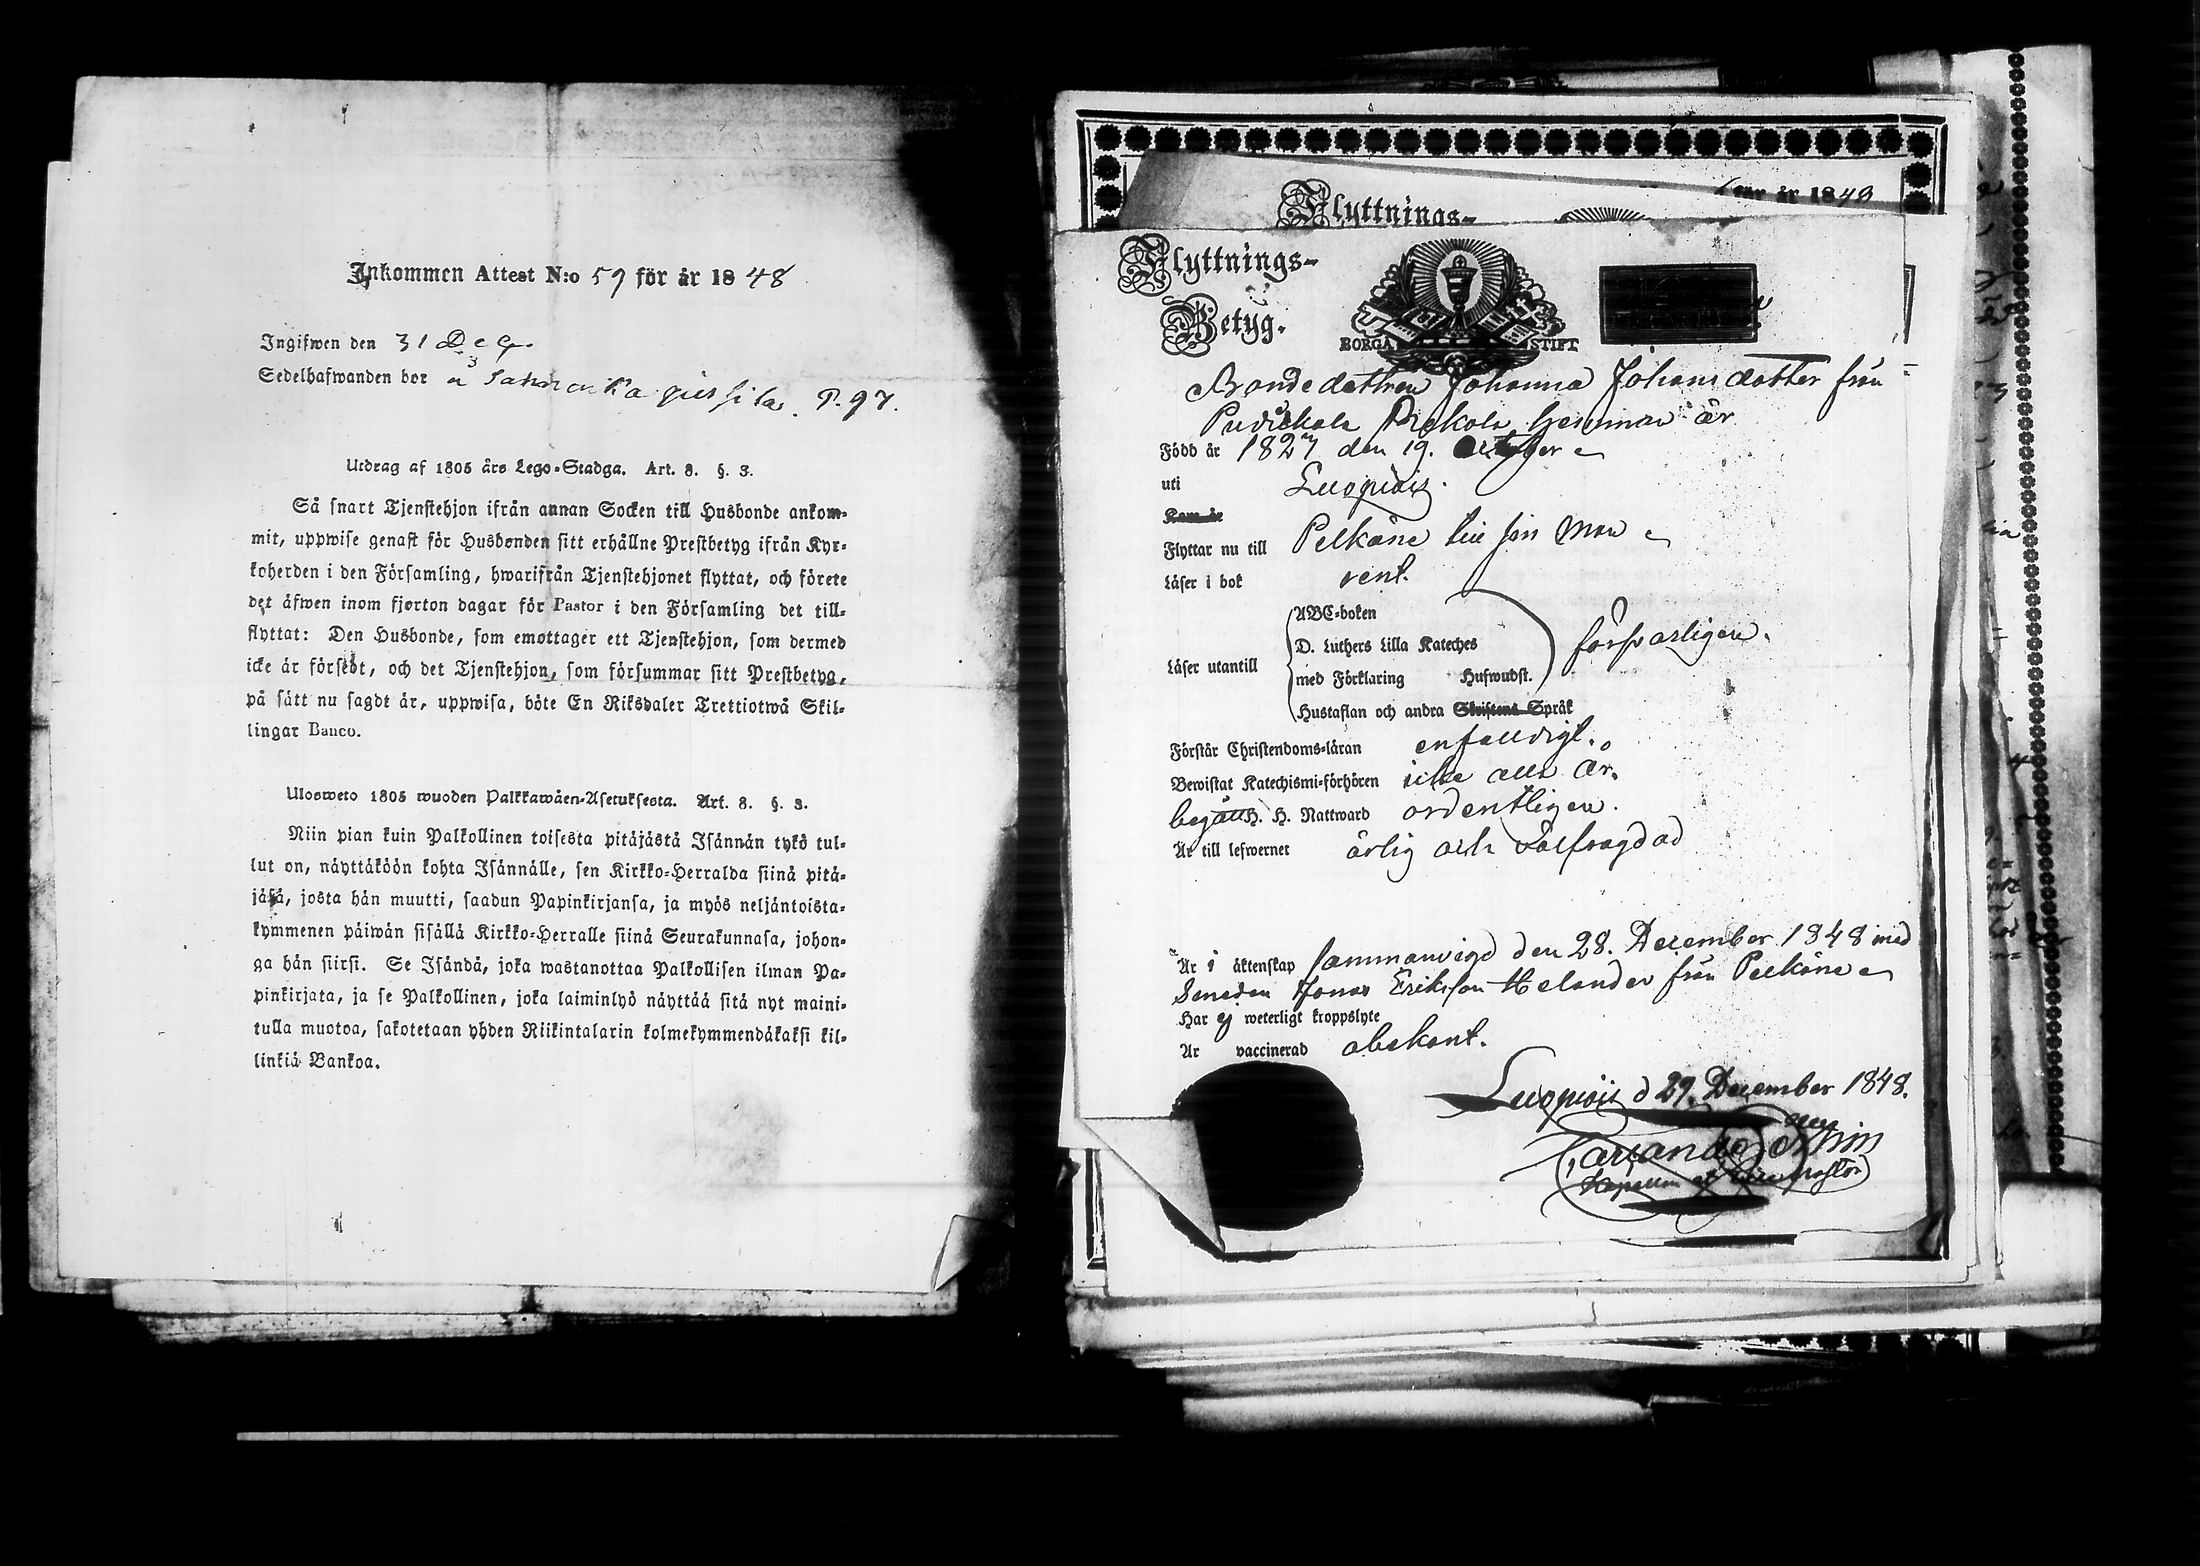 Inkommen Attest N:o 59 för år 1848
Ingifwen den 31 Dec.
Sedelhafwanden bor P. 97.
Utdrag af 1805 års Lego-Stadga. Art. 8. §. 3.
Så snart Tjenstehjon ifrån annan Socken till Husbonde ankom-
mit, uppwise genast för Husbonden sitt erhållne Prestbetyg ifrån Kyr-
koherden i den Församling, hwarifrån Tjenstehjonet flyttat, och förete
det äfwen inom fjorton dagar för Pastor i den Församling det till-
flyttat: Den Husbonde, som emottager ett Tjenstehjon, som dermed
icke är försedt, och det Tjenstehjon, som försummar sitt Prestbetyg,
på sätt nu sagdt är, uppwisa, böte En Riksdaler Trettiotwå Skil-
lingar Banco.
Ulosweto 1805 wuoden Palkkawäen-Asetuksesta. Art. 8. §. 3.
Niin pian kuin Palkollinen toisesta pitäjästä Isännän tykö tul-
lut on, näyttäköön kohta Isännälle, sen Kirkko-Herralda siinä pitä-
jäsä, josta hän muutti, saadun Papinkirjansa, ja myös neljäntoista-
kymmenen päiwän sisällä Kirkko-Herralle siinä Seurakunnasa, johon-
ga hän siirsi. Se Isändä, joka wastanottaa Palkollisen ilman Pa-
pinkirjata, ja se Palkollinen, joka laiminlyö näyttää sitä nyt maini-
tulla muotoa, sakotetaan yhden Riikintalarin kolmekymmendäkaksi kil-
linkiä Bankoa.
för år 1848
Flyttnings-
Flyttnings-
Betyg.
BORGÅ STIFT
Bondedottren Johanna Johansdotter från
hemman är
Född år 1827 den 19. October
uti Luopiois.
Kom år
Flyttar nu till Pelkäne till sin Man
Läser i bok rent.
ABC-boken
D. Luthers Lilla Kateches
Läser utantill försvarligen.
med Förklaring Hufwudst.
Hustaflan och andra Skriftens Språk
Förstår Christendoms-läran enfaldigt.
Bewistat Katechismi-förhören icke alla år.
begått H. H. Nattward ordentligen.
Är till lefwernet ärlig och välfrägdad
Är i äktenskap sammanvigd den 28. December 1848 med
Smeden Jonas Eriksson Helander från Pelkäne
Har ej weterligt kroppslyte
Är vaccinerad obekant.
Luopiois d 29. December 1848.